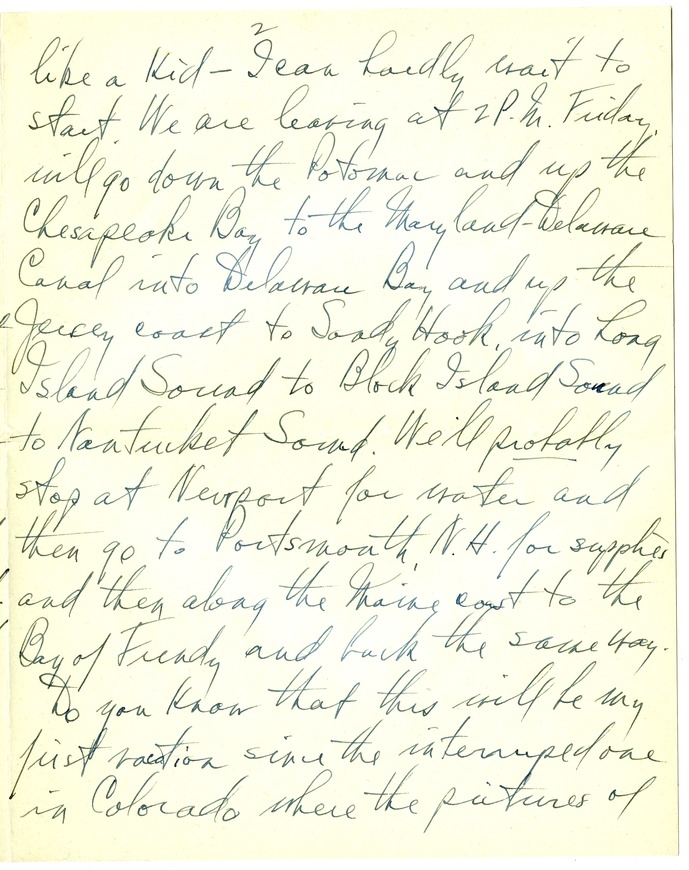 2
like a kid – I can hardly wait to
start. We are leaving at 2 P.M. Friday,
will go down the Potomac and up the
Chesapeake Bay to the Maryland-Delaware
Canal into Delaware Bay and up the
Jersey coast to Sandy Hook, into Long
Island Sound to Block Island Sound
to Nantucket Sound. We'll probably
stop at Newport for water and
then go to Portsmouth, N.H. for supplies
and then along the Maine coast to the
Bay of Fundy and back the same way.
Do you know that this will be my
first vacation since the interrupted one
in Colorado where the pictures of